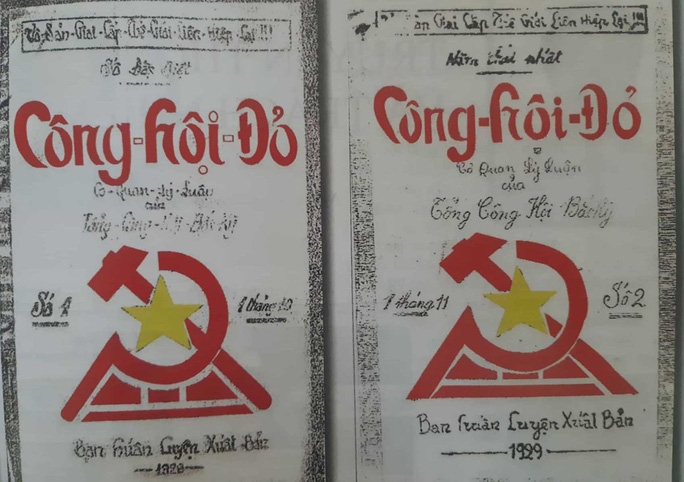 Vô-Sản-Giai-Cấp-Thế-Giới-Liên-Hiệp-Lại!!!
Số Đặc Biệt
Công-Hội-Đỏ
Cơ-Quan-Lý-Luận
của
Tổng-Công-Hội-Bắc Kỳ
Số 1
1 tháng 10
Ban Huấn Luyện Xuất Bản
1929
Sản Giai Cấp Thế Giới Liên Hiệp Lại !!!
Năm thứ nhất
Công-Hội-Đỏ
Cơ Quan Lý Luận
của
Tổng Công Hội Bắc Kỳ
1 tháng 11
Số 2
Ban Huấn Luyện Xuất Bản
1929